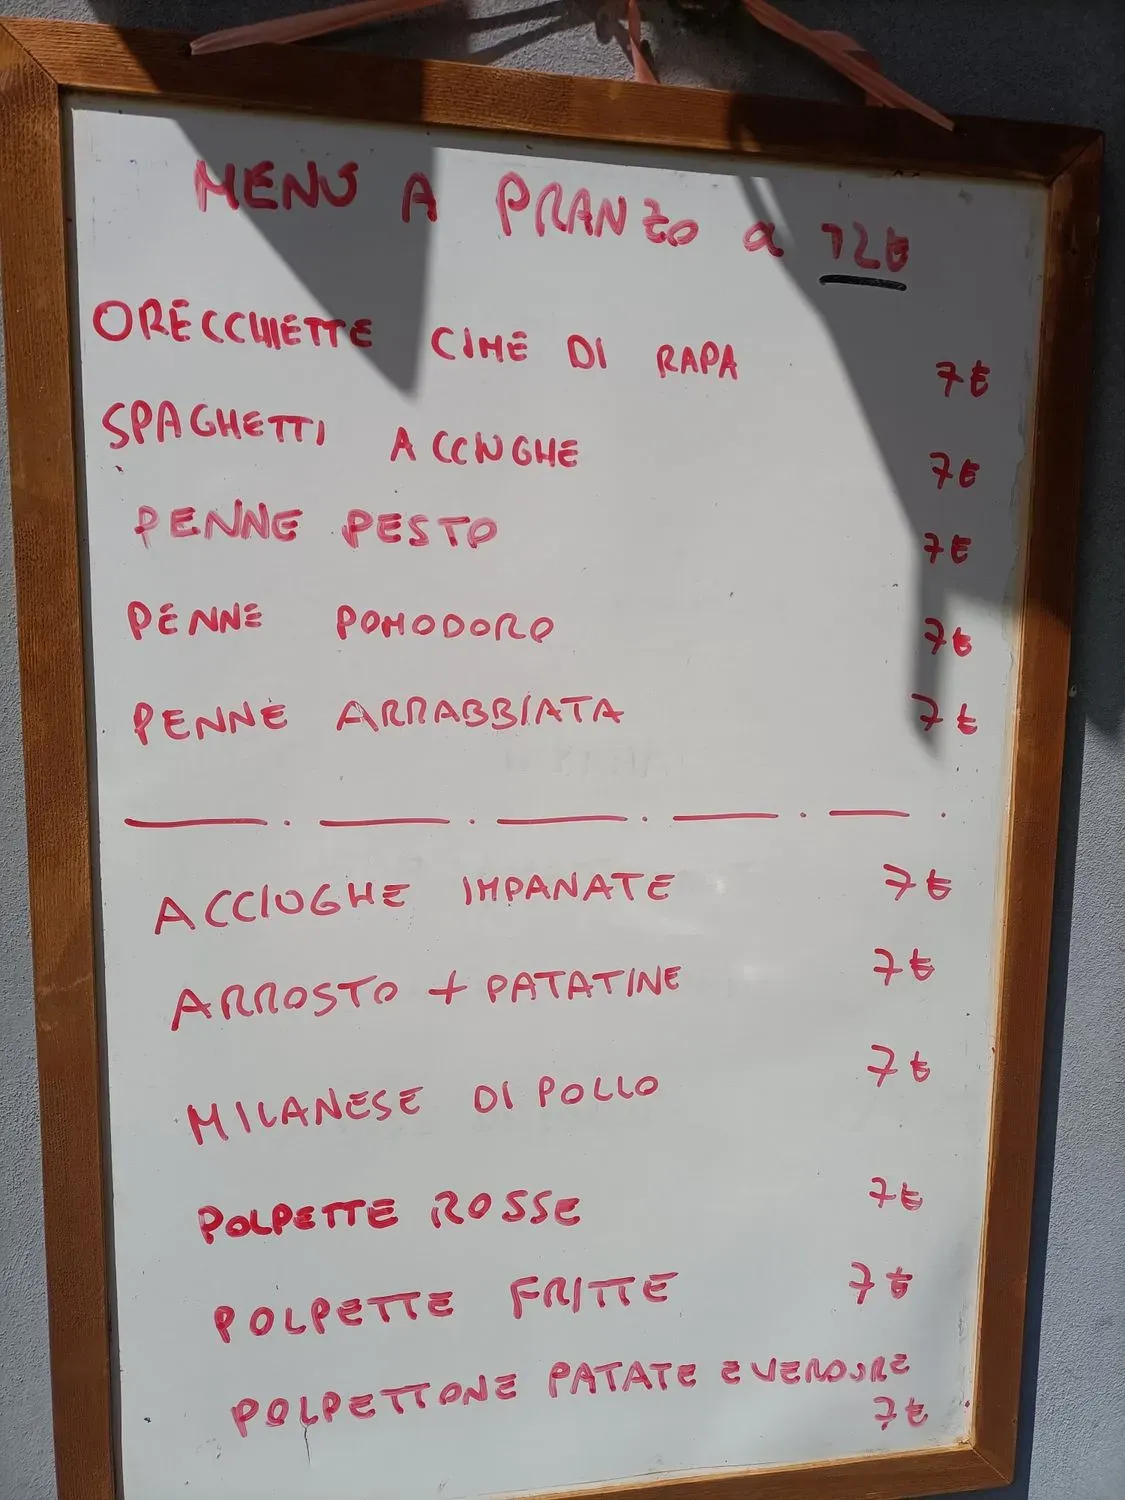 MENU A PRANZO a 12€
ORECCHIETTE CIME DI RAPA 7€
SPAGHETTI ACCIUGHE 7€
PENNE PESTO 7€
PENNE POMODORO 7€
PENNE ARRABBIATA 7€
ACCIUGHE IMPANATE 7€
ARROSTO + PATATINE 7€
MILANESE DI POLLO 7€
POLPETTE ROSSE 7€
POLPETTE FRITTE 7€
POLPETTONE PATATE E VERDURE
7€